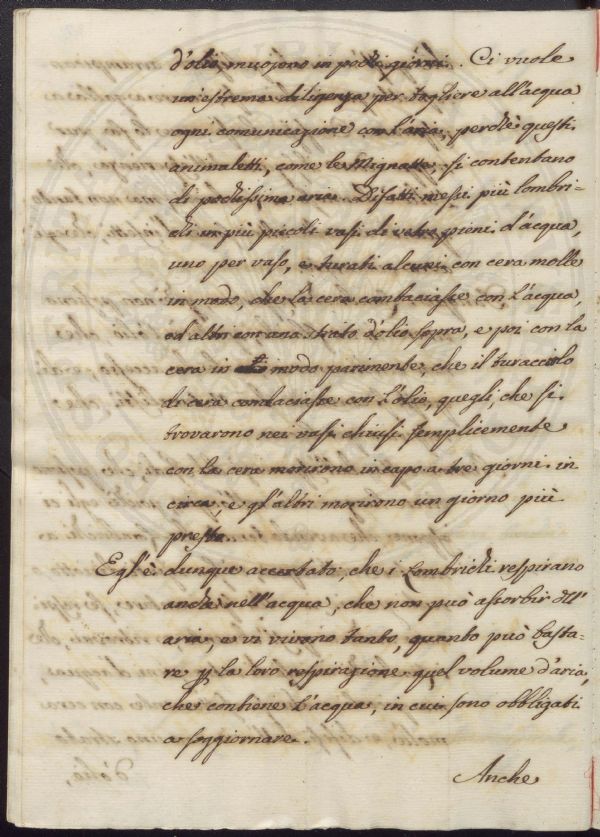 d'olio, muojono in pochi giorni. Ci vuole
un'estrema diligenza per togliere all'acqua
ogni comunicazione con l'aria, perchè questi
animaletti, come le Mignatte, si contentano
di pochissima aria. Difatti messi più lombri-
chi in più piccoli vasi di vetro pieni d'acqua,
uno per vaso, e turati alcuni con cera molle
in modo, che la cera combaciasse con l'acqua,
ed altri con uno strato d'olio sopra, e poi con la
cera in modo parimente, che il turacciolo
di cera combaciasse con l'olio, quegli, che si
trovarono nei vasi chiusi semplicemente
con la cera morirono in capo a tre giorni in
circa, e gl'altri morirono un giorno più
presto.
Egl'è dunque accertato, che i Lombrichi respirano
anche nell'acqua, che non può assorbir dell'
aria, e vi vivono tanto, quanto può basta-
re p la loro respirazione quel volume d'aria,
che contiene l'acqua, in cui sono obbligati
a soggiornare.
Anche